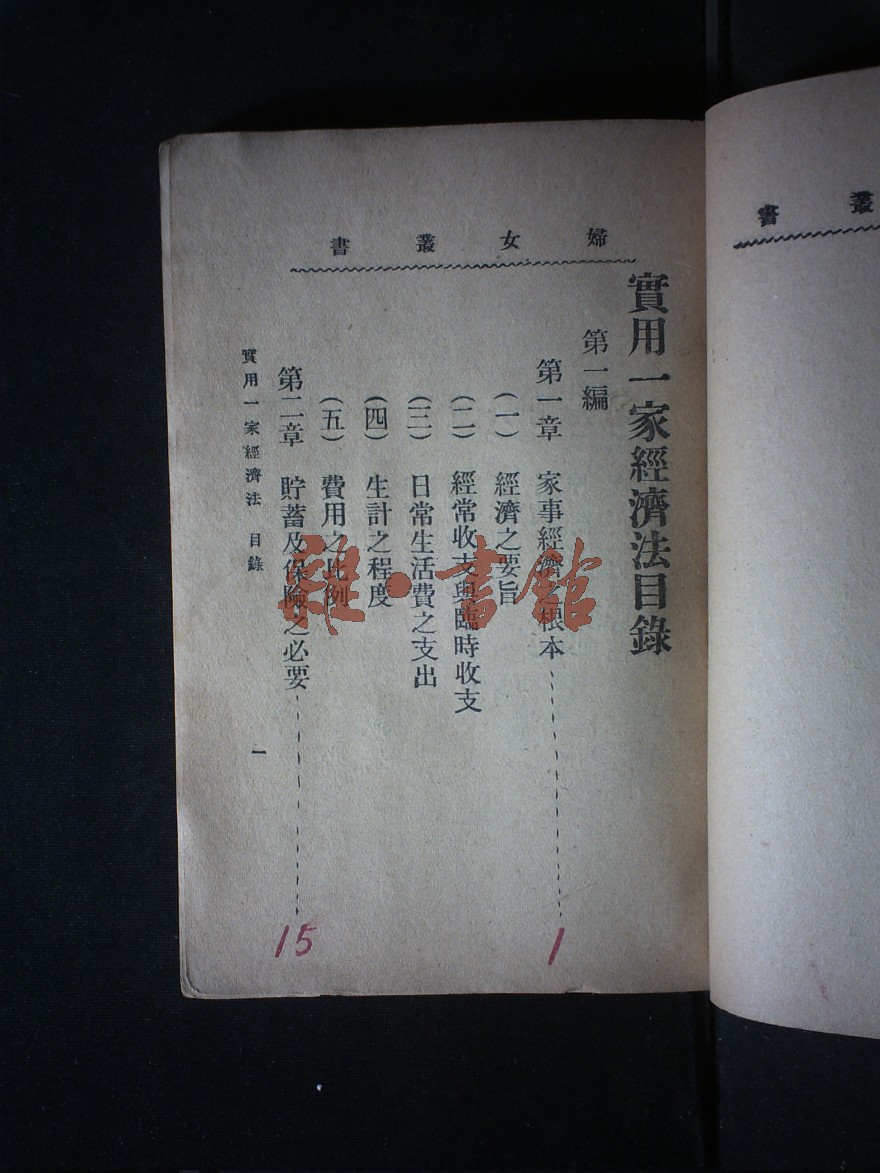 婦女叢書
實用一家經濟法目錄
第一編
第一章 家事經濟之根本 1
(一) 經濟之要旨
(二) 經常收支與臨時收支
(三) 日常生活費之支出
(四) 生計之程度
(五) 費用之比例
第二章 貯蓄及保險之必要 15
實用一家經濟法 目錄 一
叢書
雜·書館